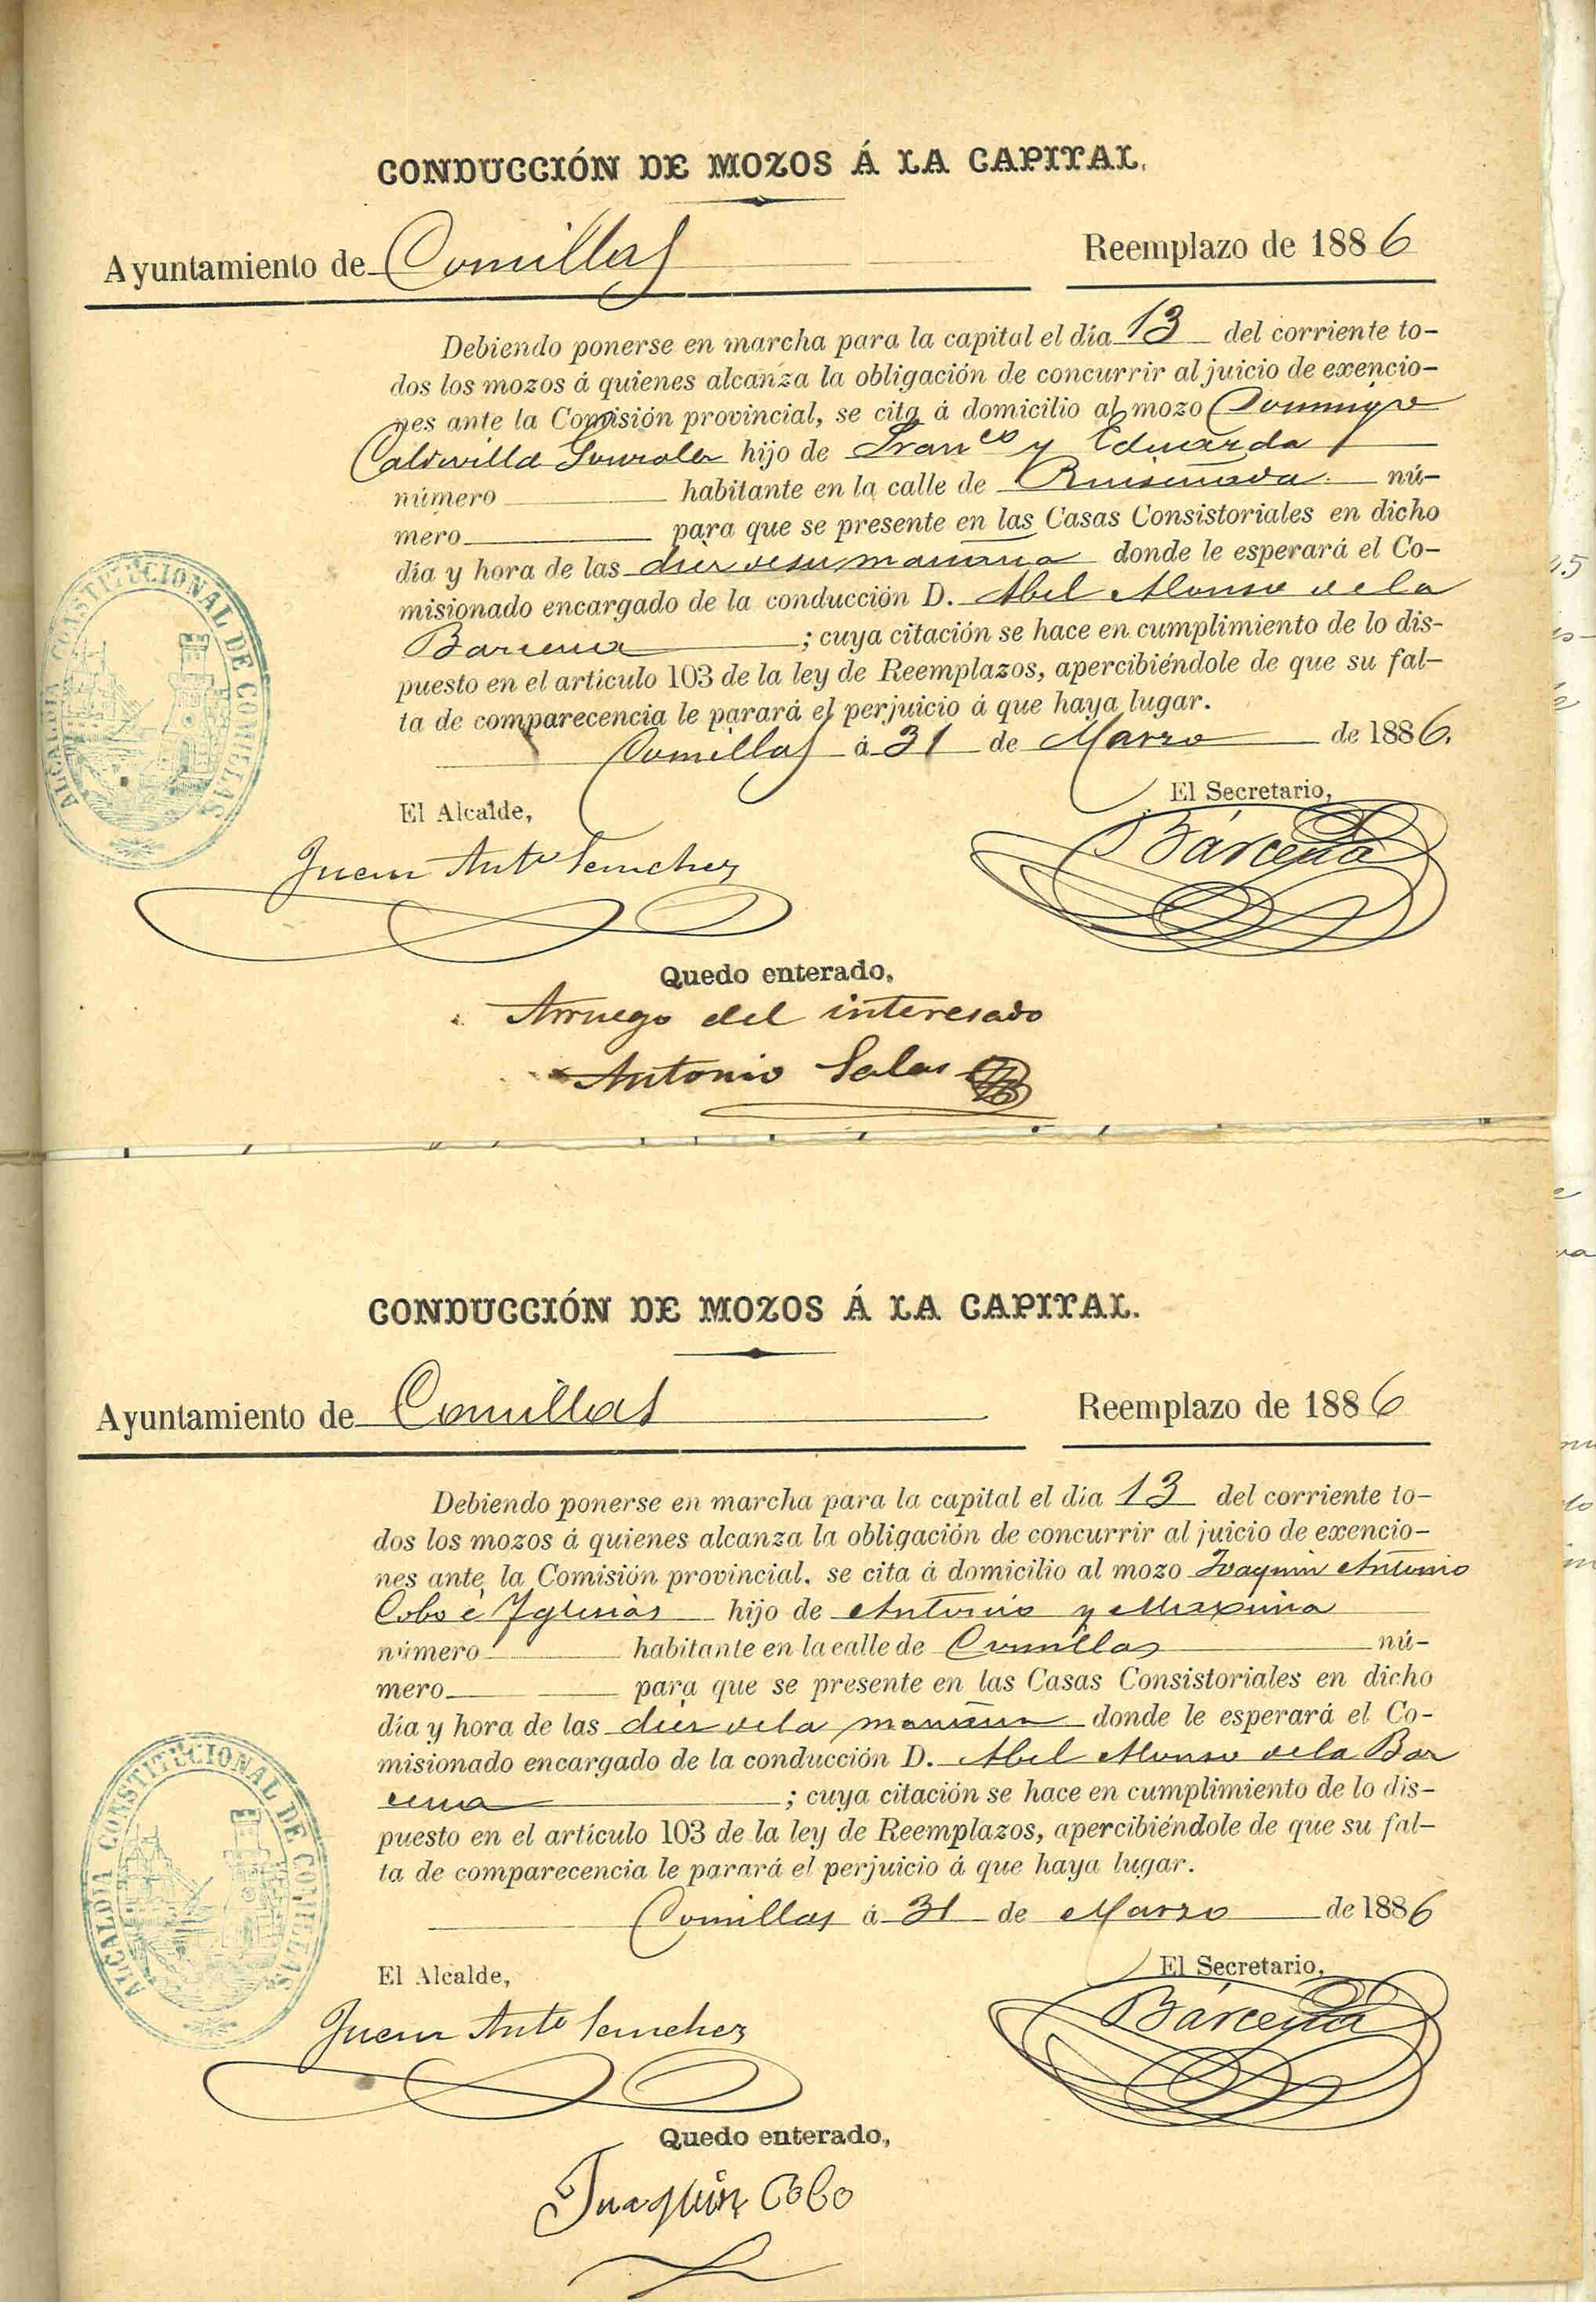 CONDUCCIÓN DE MOZOS Á LA CAPITAL.
Ayuntamiento de Comillas
Reemplazo de 1886
Debiendo ponerse en marcha para la capital el día 13 del corriente to-
dos los mozos á quienes alcanza la obligación de concurrir al juicio de exencio-
nes ante la Comisión provincial, se cita á domicilio al mozo Domingo
hijo de Franco y Eduarda
número habitante en la calle de Ruiseñada nú-
mero para que se presente en las Casas Consistoriales en dicho
día y hora de las diez de su mañana donde le esperará el Co-
misionado encargado de la conducción D. Abel Alonso de la
Barcena ; cuya citación se hace en cumplimiento de lo dis-
puesto en el artículo 103 de la ley de Reemplazos, apercibiéndole de que su fal-
ta de comparecencia le parará el perjuicio á que haya lugar.
Comillas á 31 de Marzo de 1886.
El Alcalde,
El Secretario,
Juan Anto Sanchez
Bárcena
Quedo enterado,
Arruego del interesado
Antonio Salas
ALCALDÍA CONSTITUCIONAL DE COMILLAS
CONDUCCIÓN DE MOZOS Á LA CAPITAL.
Ayuntamiento de Comillas
Reemplazo de 1886
Debiendo ponerse en marcha para la capital el día 13 del corriente to-
dos los mozos á quienes alcanza la obligación de concurrir al juicio de exencio-
nes ante la Comisión provincial, se cita á domicilio al mozo Joaquin Antonio
Cobo é Yglesias hijo de Antonio y Maxima
número habitante en la calle de Comillas nú-
mero para que se presente en las Casas Consistoriales en dicho
día y hora de las diez de la mañana donde le esperará el Co-
misionado encargado de la conducción D. Abel Alonso de la Bar
cena ; cuya citación se hace en cumplimiento de lo dis-
puesto en el artículo 103 de la ley de Reemplazos, apercibiéndole de que su fal-
ta de comparecencia le parará el perjuicio á que haya lugar.
Comillas á 31 de Marzo de 1886
El Alcalde,
El Secretario,
Juan Anto Sanchez
Bárcena
Quedo enterado,
Juaquin Cobo
ALCALDÍA CONSTITUCIONAL DE COMILLAS